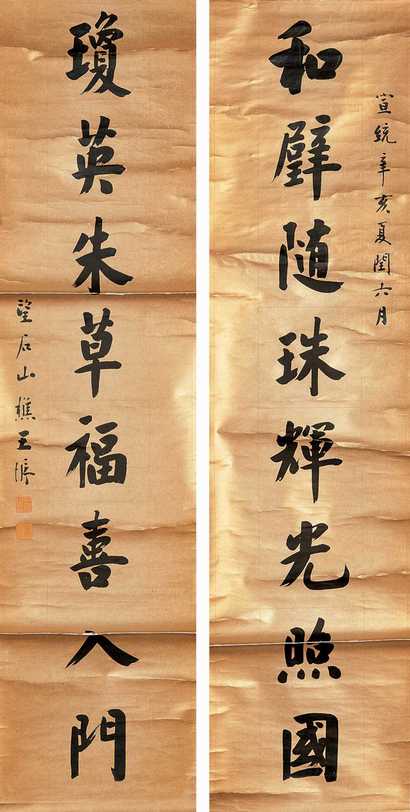 宣統辛亥夏閏六月
和璧随珠輝光照國
瓊英朱草福喜入門
望石山樵王垿